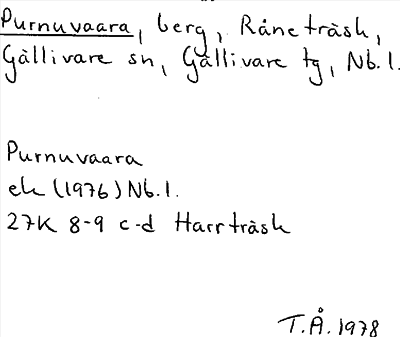 Purnuvaara, berg, Råneträsk,
Gällivare sn, Gällivare tg, Nb. l.
Purnuvaara
ek (1976) Nb. l.
27K 8-9 c-d Harrträsk
T.Å. 1978